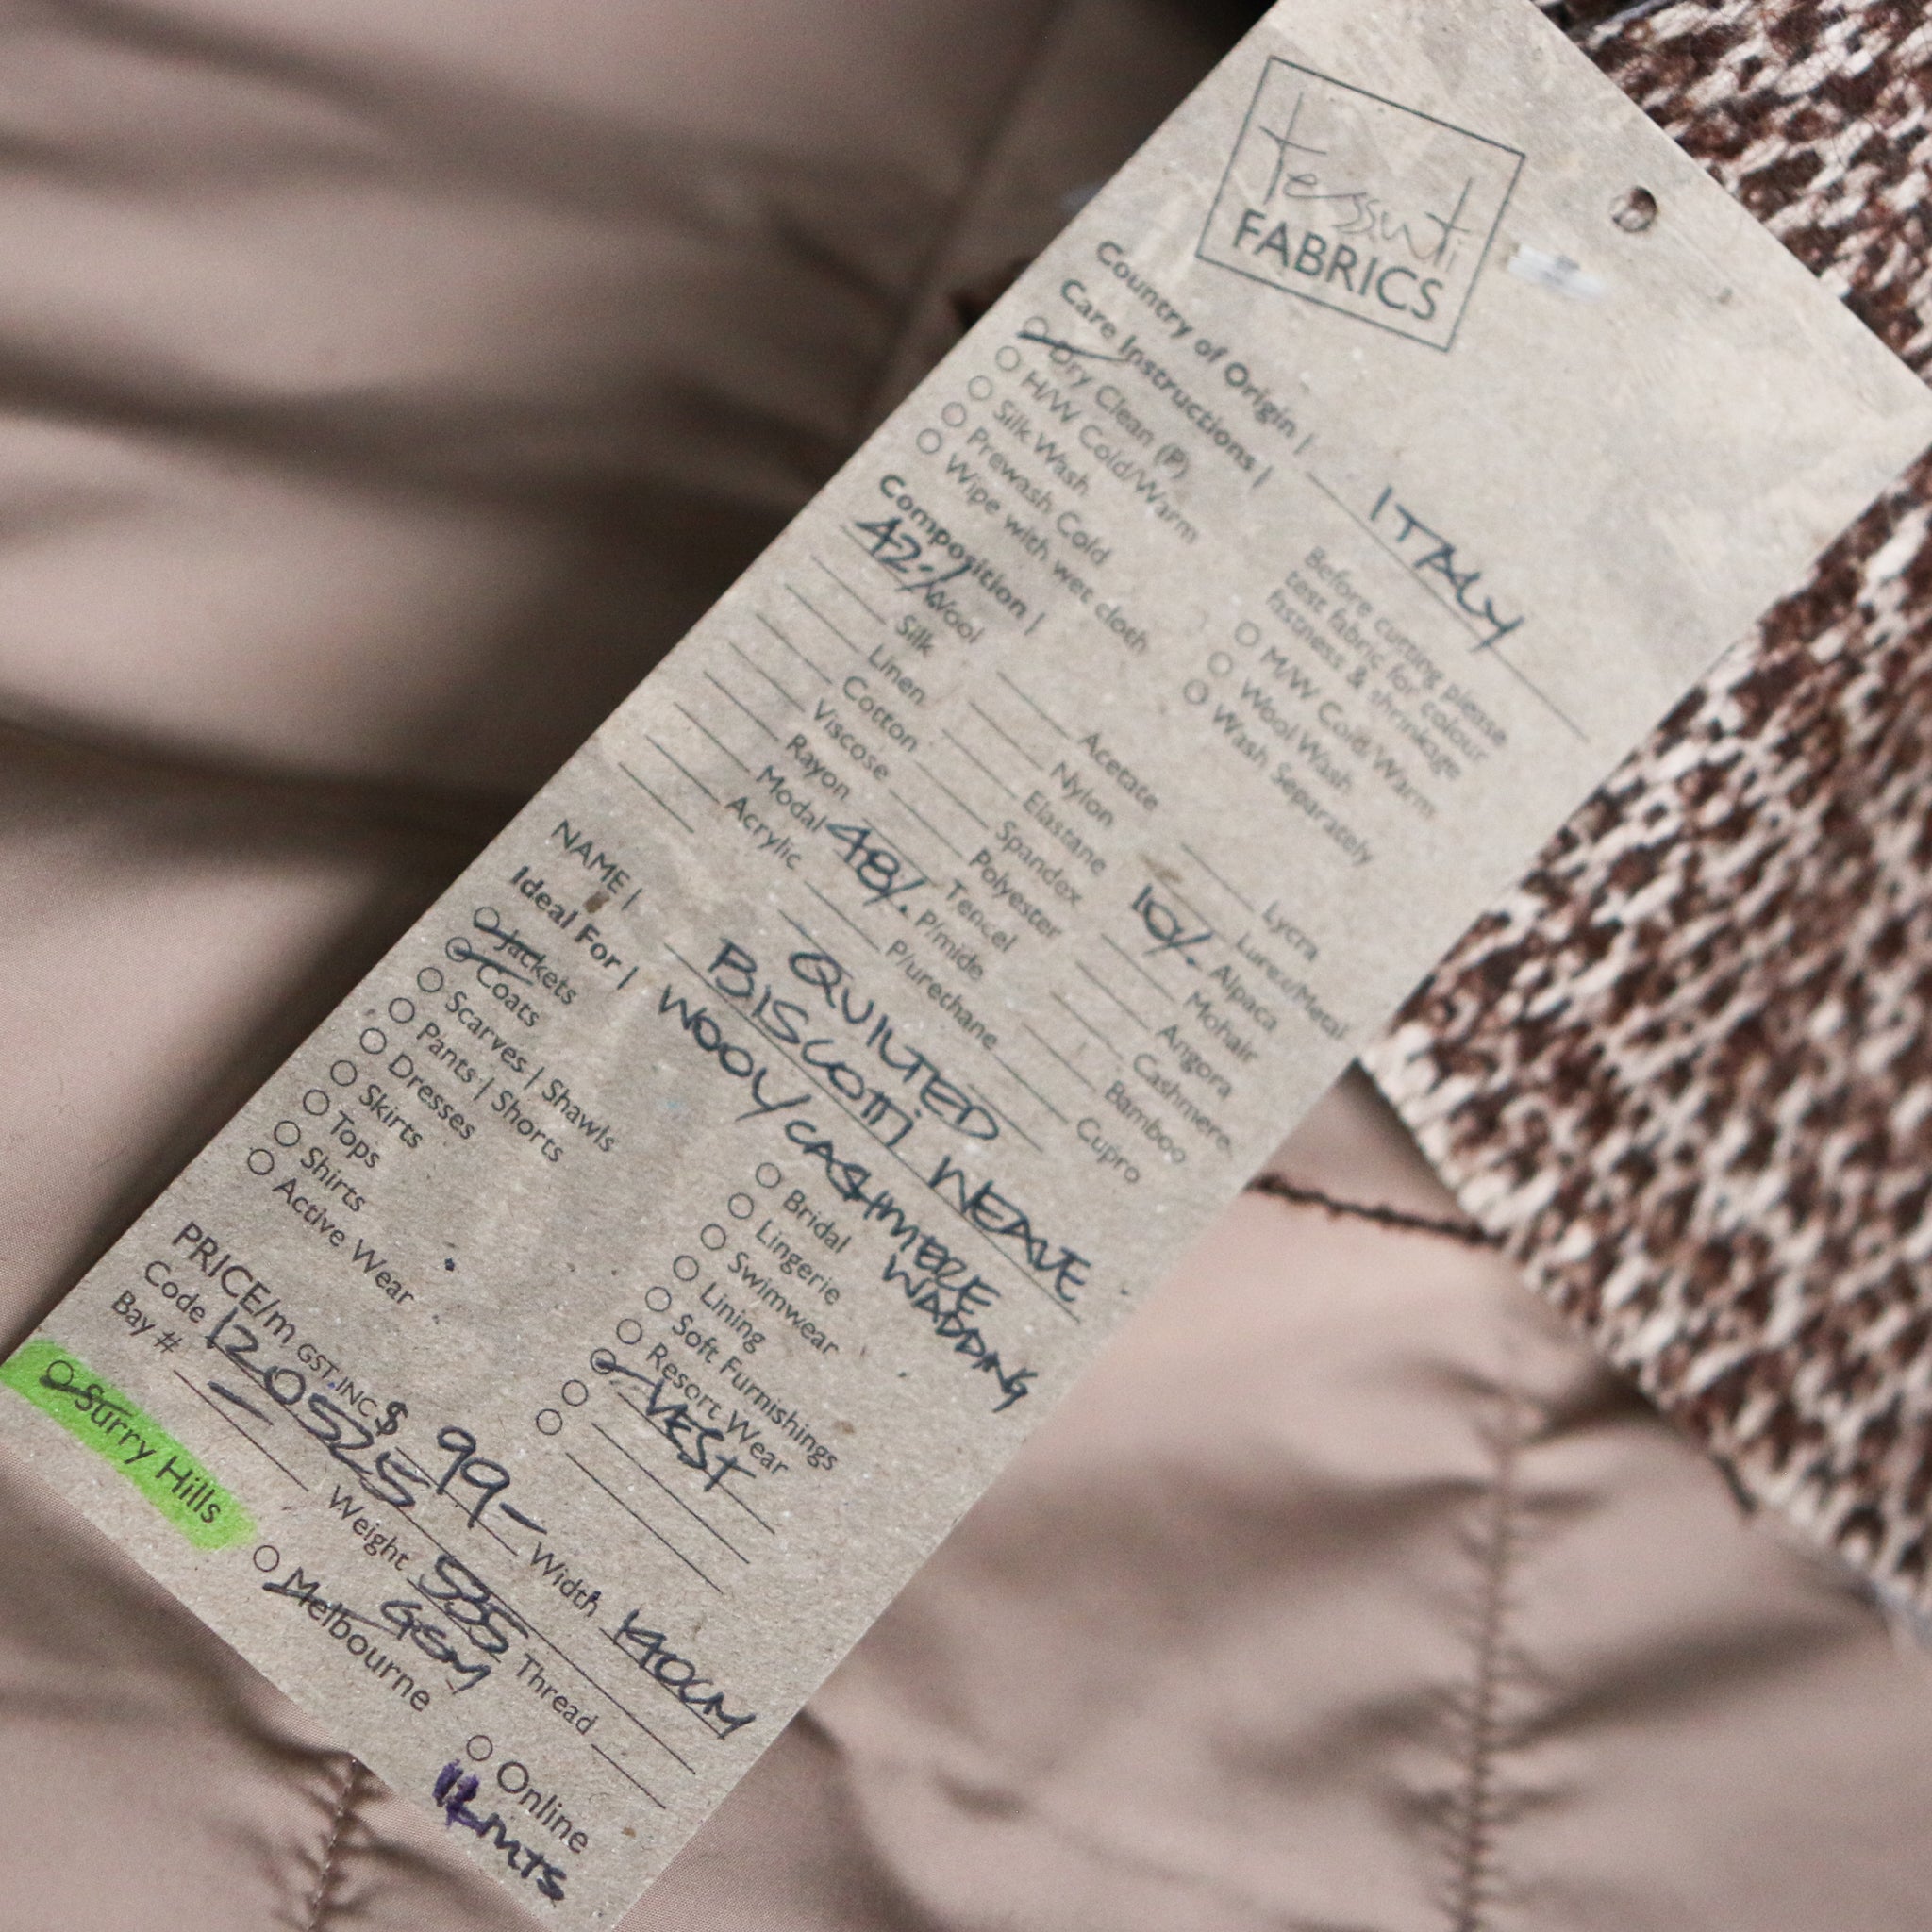 tessuti
FABRICS
Country of Origin | ITALY
Care Instructions |
Before cutting please
test fabric for colour
fastness & shrinkage
Dry Clean (P)
H/W Cold/Warm
Silk Wash
Prewash Cold
Wipe with wet cloth
M/W Cold/Warm
Wool Wash
Wash Separately
Composition |
42% Wool
Silk
Linen
Cotton
Viscose
Rayon
Modal
Acrylic
Acetate
Nylon
Elastane
Spandex
Polyester
Tencel
48% P/mide
P/urethane
Lycra
Lurex/Metal
10% Alpaca
Mohair
Angora
Cashmere
Bamboo
Cupro
NAME | QUILTED
BISCOTTI WEAVE
Ideal For | WOOL/CASHMERE
WADDING
Jackets
Coats
Scarves | Shawls
Pants | Shorts
Dresses
Skirts
Tops
Shirts
Active Wear
Bridal
Lingerie
Swimwear
Lining
Soft Furnishings
Resort Wear
VEST
PRICE/m GST.INC $ 99- Width 140CM
Code 120525 Weight 535 GSM Thread
Bay # -
Surry Hills
Melbourne
Online
MTS